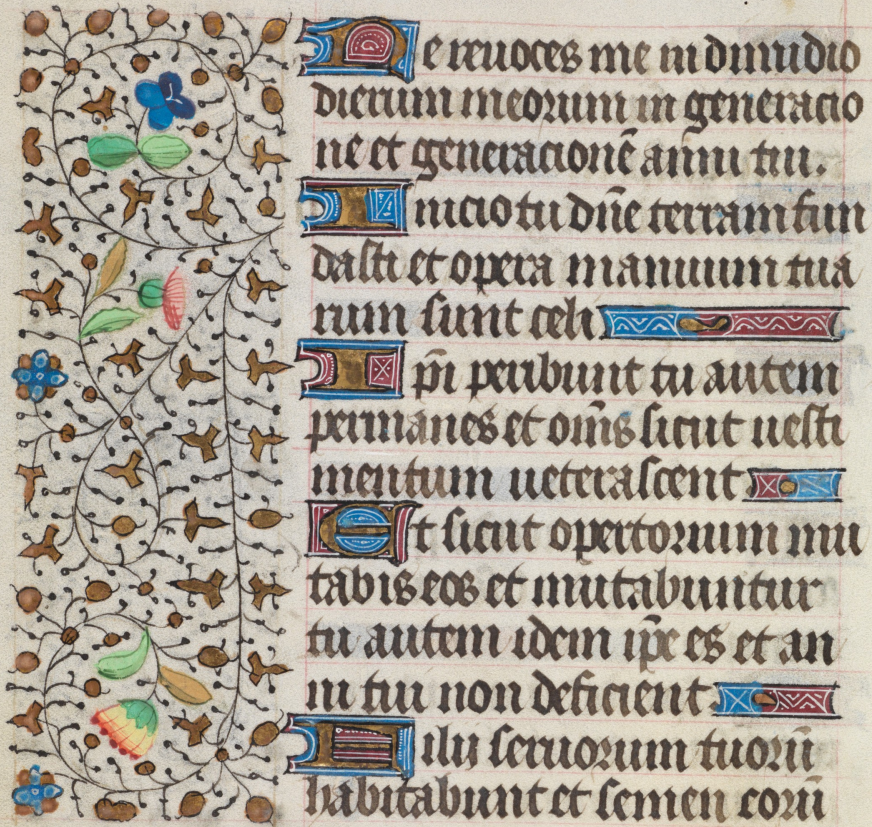 Ne reuoces me in dimidio
dierum meorum in generacio
ne et generacionē anni tui.
Inicio tu dn̄e terram fun
dasti et opera manuum tua
rum sunt celi
Ip̄i peribunt tu autem
permanes et om̄s sicut uesti
mentum ueterascent
Et sicut opertorium mu
tabis eos et mutabuntur
tu autem idem ip̄e es et an
ni tui non deficient
Filii seruorum tuorū
habitabunt et semen eorū